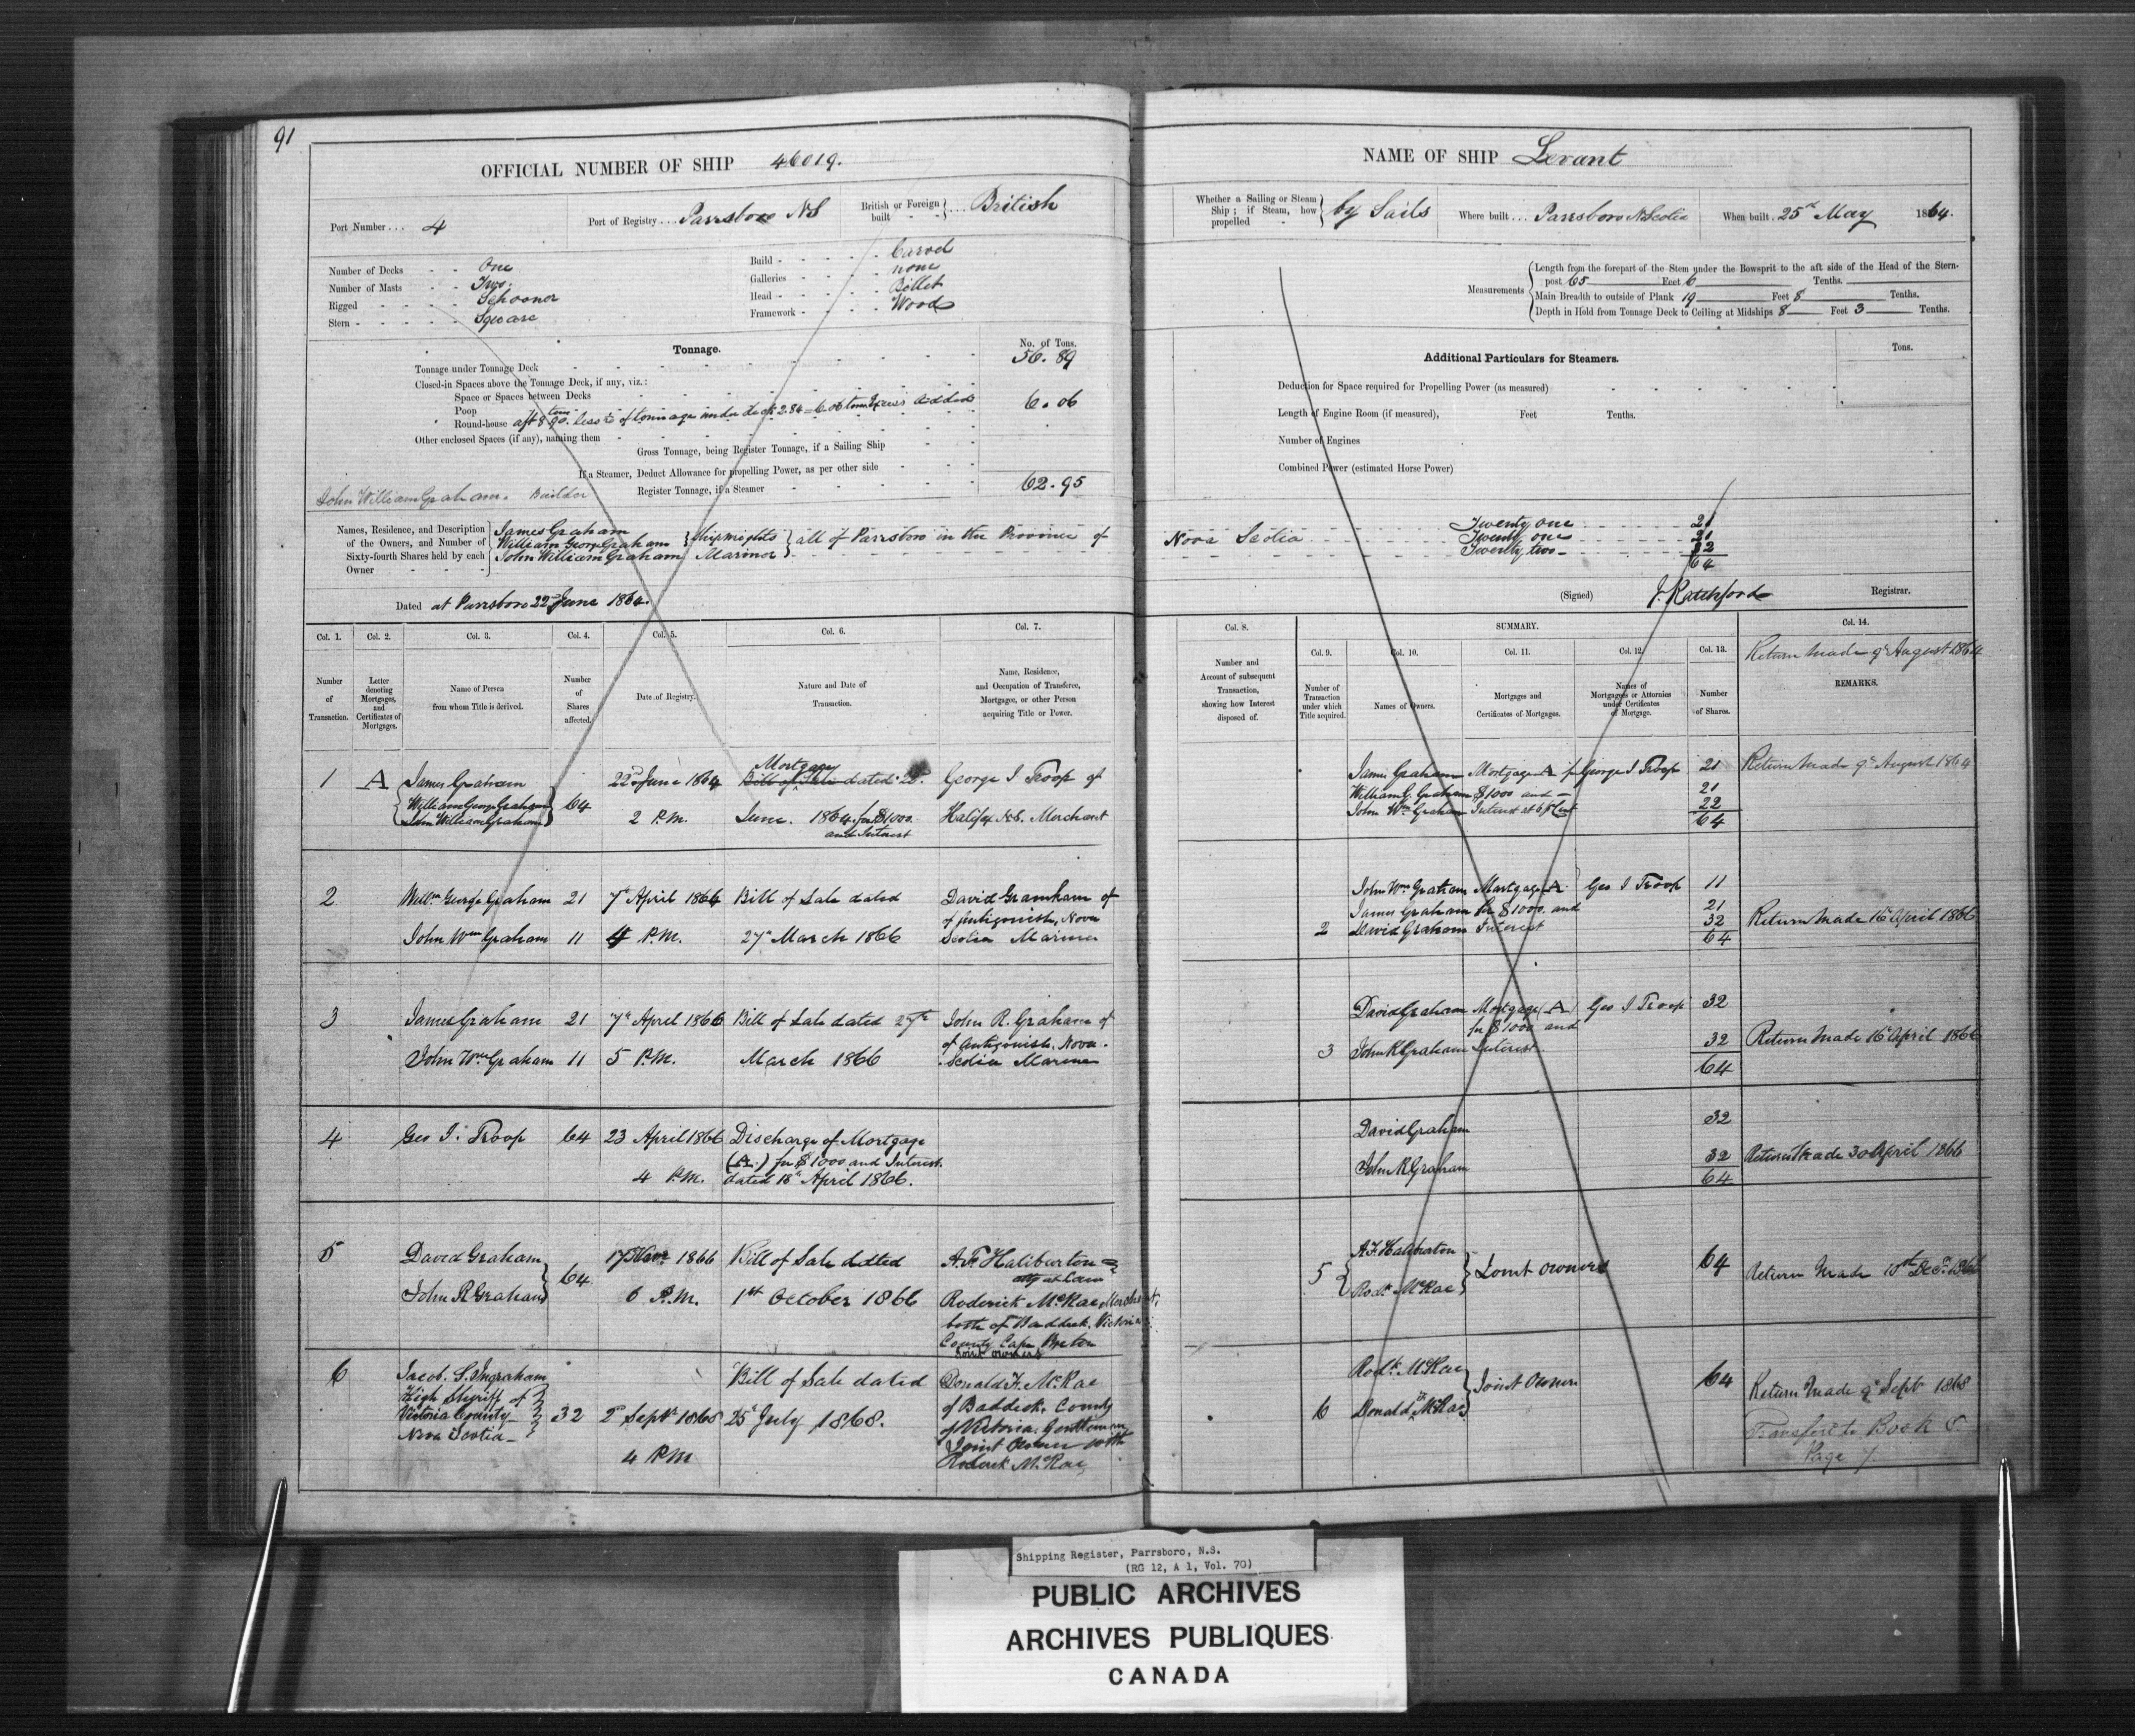 91
OFFICIAL NUMBER OF SHIP 46019.
Port Number ... 4
Port of Registry ... Parrsboro NS
British or Foreign built - - } ... British
Number of Decks - - One
Number of Masts - - Two.
Rigged - - - - Schooner
Stern - - - - - Square
Build - - - - - Carvel
Galleries - - - - none
Head - - - - - Billet
Framework - - - - Wood
Tonnage.
No. of Tons.
Tonnage under Tonnage Deck 56.89
Closed-in Spaces above the Tonnage Deck, if any, viz.:
Space or Spaces between Decks
Poop
Round-house aft 8.90 tons less of tonnage under deck 2.84 = 6.06 tons Excess added 6.06
Other enclosed Spaces (if any), naming them
Gross Tonnage, being Register Tonnage, if a Sailing Ship
If a Steamer, Deduct Allowance for propelling Power, as per other side
Register Tonnage, if a Steamer 62.95
John William Graham. Builder
Names, Residence, and Description of the Owners, and Number of Sixty-fourth Shares held by each Owner
James Graham
William George Graham } Shipwrights
John William Graham Mariner } all of Parrsboro in the Province of
Dated at Parrsboro 22d June 1864.
NAME OF SHIP Levant
Whether a Sailing or Steam Ship; if Steam, how propelled } by Sails
Where built ... Parrsboro N Scotia
When built . 25th May 1864.
Measurements
Length from the forepart of the Stem under the Bowsprit to the aft side of the Head of the Stern-
post 65 Feet 6 Tenths.
Main Breadth to outside of Plank 19 Feet 8 Tenths.
Depth in Hold from Tonnage Deck to Ceiling at Midships 8 Feet 3 Tenths.
Additional Particulars for Steamers.
Tons.
Deduction for Space required for Propelling Power (as measured)
Length of Engine Room (if measured), Feet Tenths.
Number of Engines
Combined Power (estimated Horse Power)
Nova Scotia
Twenty one 21
Twenty one 21
Twenty two 22
64
(Signed) J. Ratchford Registrar.
Col. 1. Col. 2. Col. 3. Col. 4. Col. 5. Col. 6. Col. 7.
Number of Transaction.
Letter denoting Mortgages, and Certificates of Mortgages.
Name of Person from whom Title is derived.
Number of Shares affected.
Date of Registry.
Nature and Date of Transaction.
Name, Residence, and Occupation of Transferee, Mortgagee, or other Person acquiring Title or Power.
1 A James Graham
William George Graham
John William Graham } 64
22d June 1864
2 P.M.
Mortgage
Bill of Sale dated 22d
June. 1864 for $1000.
and Interest
George I Troop of
Halifax N.S. Merchant
2 Willm George Graham 21
John Wm Graham 11
7th April 1866
4 P.M.
Bill of Sale dated
27th March 1866
David Graham of
of Antigonish, Nova
Scotia Mariner
3 James Graham 21
John Wm Graham 11
7th April 1866
5 P.M.
Bill of Sale dated 27th
March 1866
John R. Graham of
of Antigonish, Nova
Scotia Mariner
4 Geo I. Troop 64
23 April 1866
4 P.M.
Discharge of Mortgage
(A) for $1000 and Interest.
dated 18th April 1866.
5 David Graham
John R Graham } 64
17 Novr 1866
6 P.M.
Bill of Sale dated
1st October 1866
A. F. Haliburton
atty at Law
Roderick McRae Merchant,
both of Baddeck. Victoria
County Cape Breton
Joint owners
6 Jacob. S. Ingraham
High Sheriff of
Victoria County
Nova Scotia } 32
2d Septr 1868
4 PM
Bill of Sale dated
25th July 1868.
Donald F. McRae
of Baddeck, County
of Victoria. Gentleman
Joint Owner with
Roderick McRae
Col. 8.
Number and Account of subsequent Transaction, showing how Interest disposed of.
SUMMARY.
Col. 9. Col. 10. Col. 11. Col. 12. Col. 13. Col. 14.
Number of Transaction under which Title acquired.
Names of Owners.
Mortgages and Certificates of Mortgages.
Names of Mortgagees or Attornies under Certificates of Mortgage.
Number of Shares.
Return Made 9th August 1864
REMARKS.
James Graham Mortgage A for George I Troop 21 Return Made 9th August 1864
William G. Graham $1000 and 21
John Wm Graham Interest at 6 p Cent 22
64
John Wm Graham Mortgage A Geo I Troop 11
James Graham for $1000. and 21
2 David Graham Interest 32 Return Made 16th April 1866
64
David Graham Mortgage (A) Geo I Troop 32
for $1000 and
3 John R Graham Interest. 32 Return Made 16th April 1866
64
David Graham 32
John R Graham 32 Return Made 30 April 1866
64
5 { A F Haliburton
Rodk McRae } Joint owners 64 Return Made 10th Decr 1866
Rodk McRae
6 Donald F McRae } Joint Owners 64 Return Made 9th Sept 1868
Transfer to Book C.
Page 7
Shipping Register, Parrsboro, N.S.
(RG 12, A 1, Vol. 70)
PUBLIC ARCHIVES
ARCHIVES PUBLIQUES
CANADA